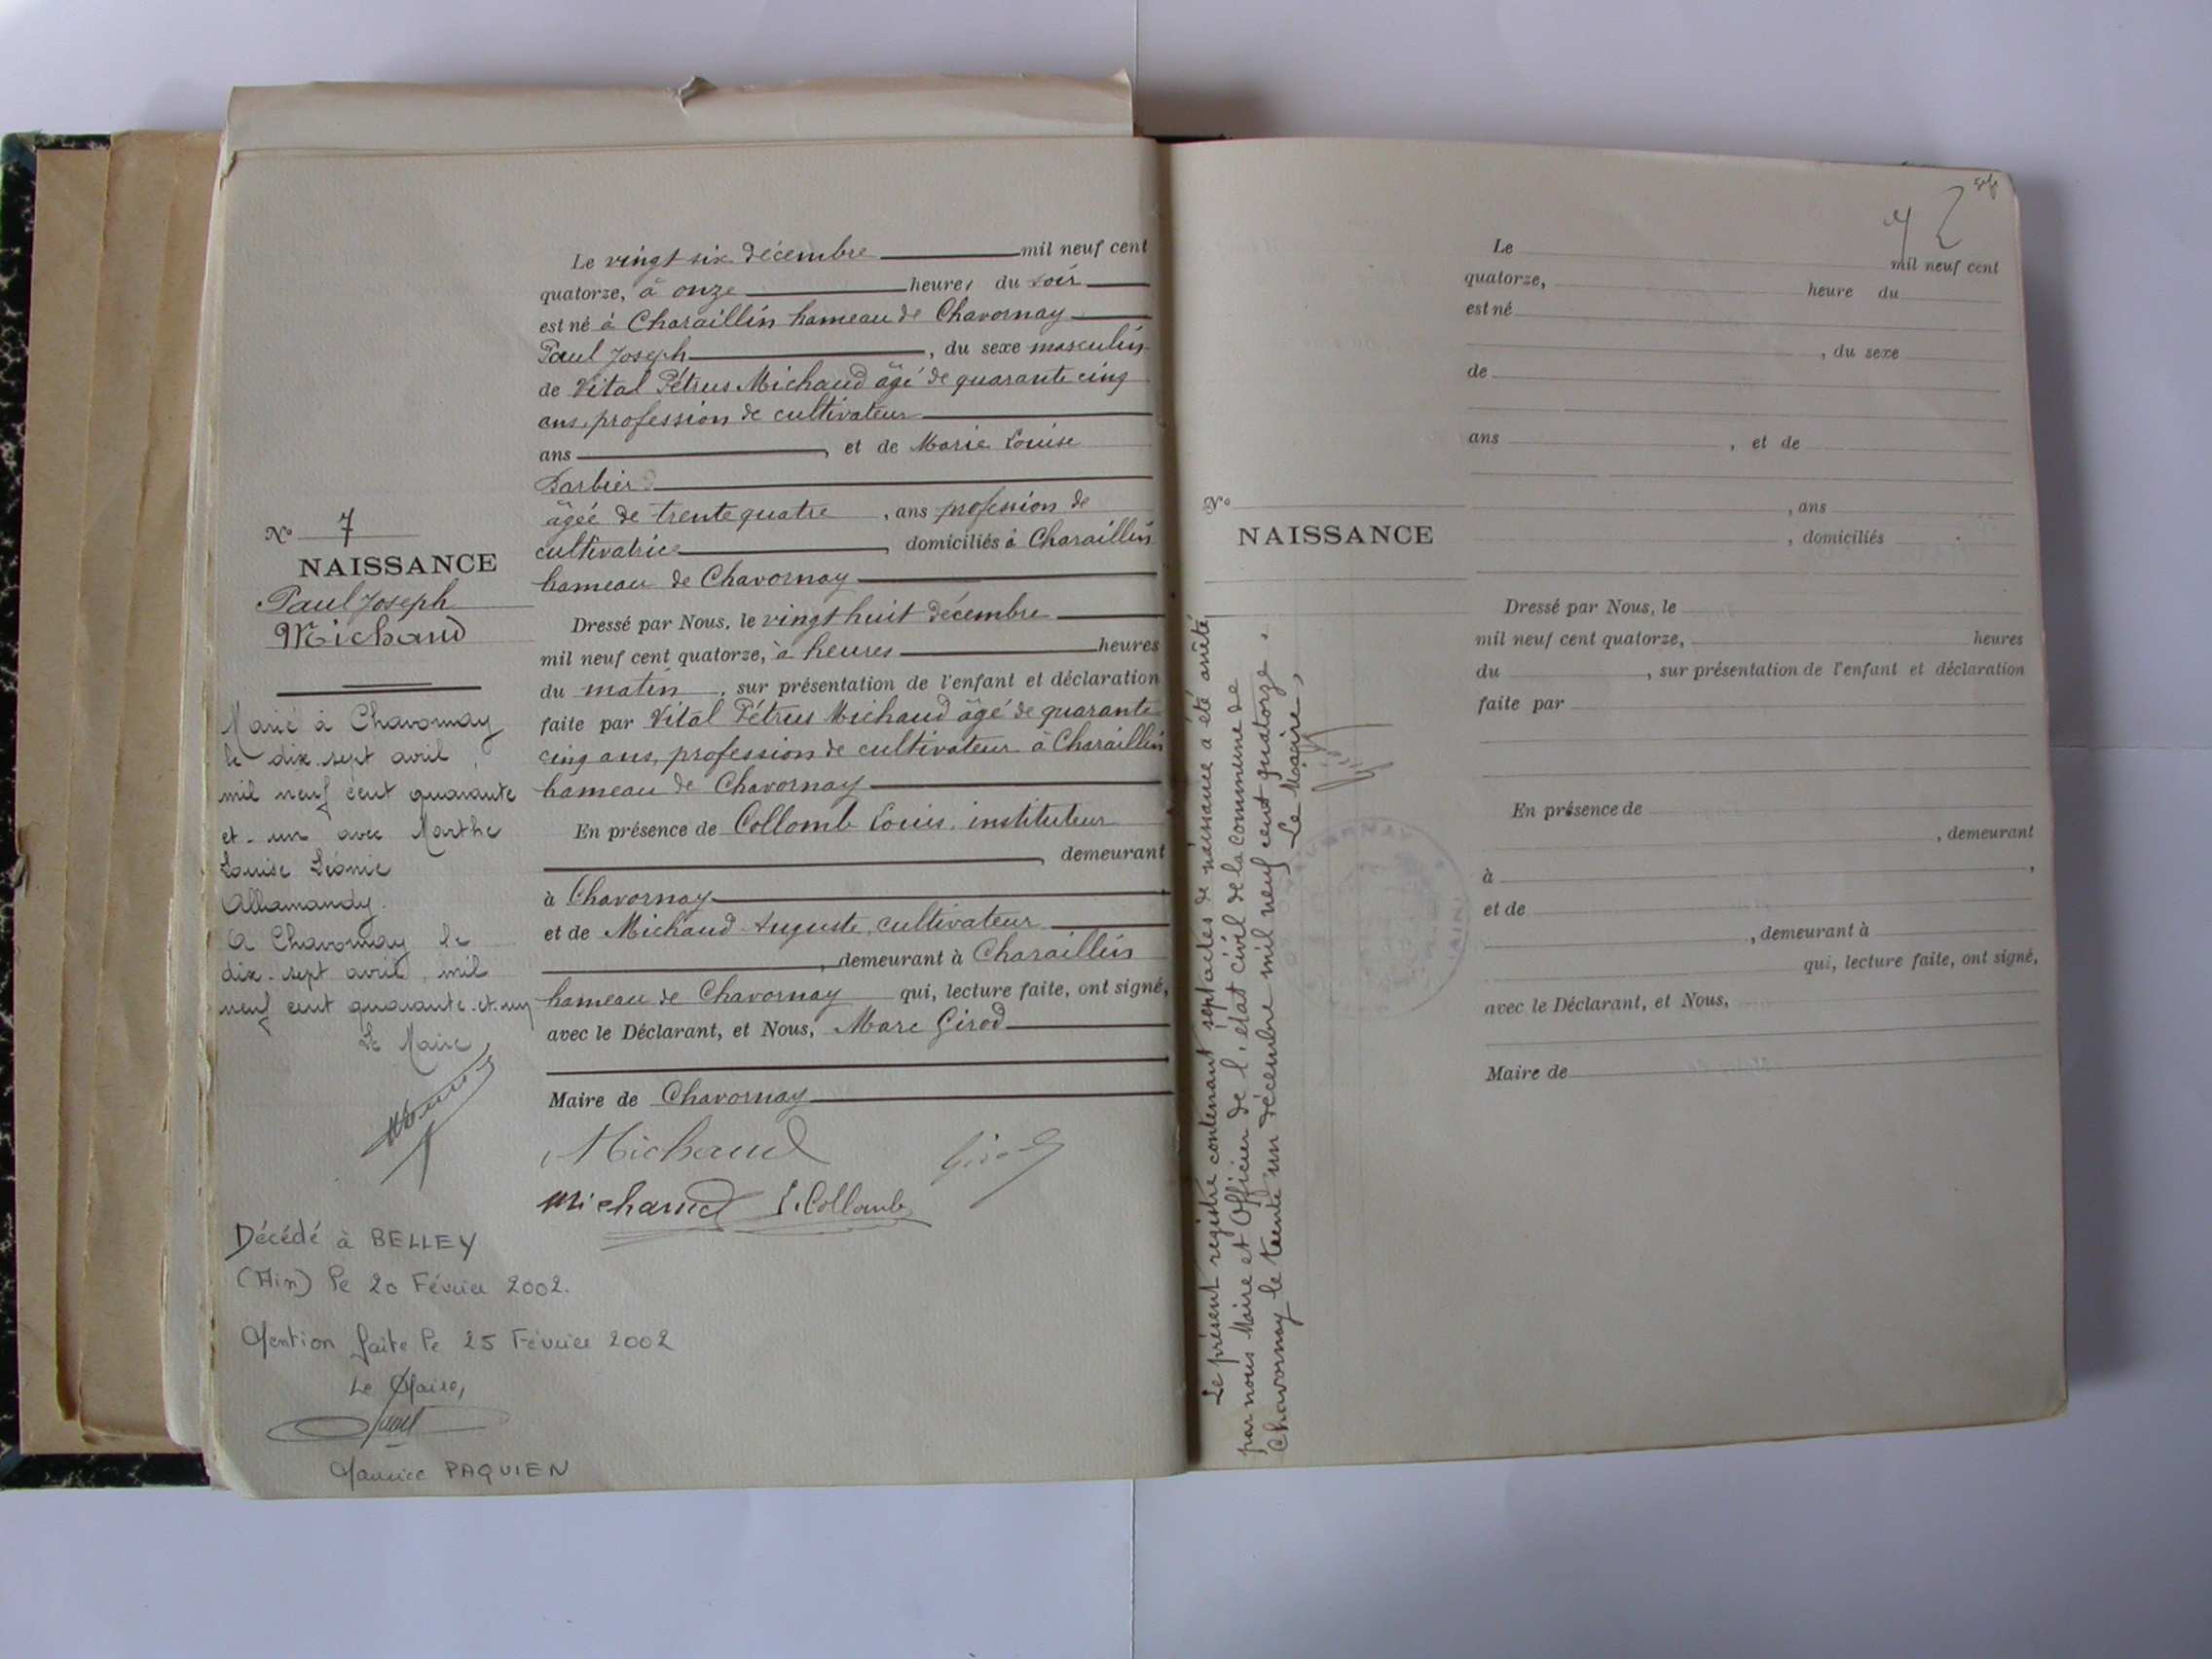 Le vingt six décembre mil neuf cent
quatorze, à onze heures du soir
est né à Charaillin hameau de Chavornay
Paul Joseph, du sexe masculin
de Vital Pétrus Michaud âgé de quarante cinq
ans, profession de cultivateur
ans, et de Marie Louise
Barbier
âgée de trente quatre, ans profession de
cultivatrice, domiciliés à Charaillin
hameau de Chavornay
Dressé par Nous, le vingt huit décembre
mil neuf cent quatorze, à heures heures
du matin, sur présentation de l'enfant et déclaration
faite par Vital Pétrus Michaud âgé de quarante
cinq ans, profession de cultivateur à Charaillin
hameau de Chavornay
En présence de Collomb Louis, instituteur
, demeurant
à Chavornay
et de Michaud Auguste, cultivateur
, demeurant à Charaillin
hameau de Chavornay qui, lecture faite, ont signé,
avec le Déclarant, et Nous, Marc Girod
Maire de Chavornay
Michaud
Girod
Michaud L. Collomb
N° 7
NAISSANCE
Paul Joseph
Michaud
Marié à Chavornay
le dix-sept avril
mil neuf cent quarante
et-un avec Marthe
Louise Léonie
Allamandy.
A Chavornay le
dix-sept avril, mil
neuf cent quarante-et-un
Le Maire,
Décédé à BELLEY
(Ain) le 20 Février 2002.
Mention faite le 25 Février 2002
Le Maire,
Maurice PAQUIEN
Le présent registre contenant sept actes de naissance a été arrêté
par nous Maire et Officier de l'état civil de la commune de
Chavornay le trente un décembre mil neuf cent quatorze.
Le Maire,
N°
NAISSANCE
Le mil neuf cent
quatorze, heure du
est né
, du sexe
de
ans , et de
, ans
, domiciliés
Dressé par Nous, le
mil neuf cent quatorze, heures
du , sur présentation de l'enfant et déclaration
faite par
En présence de
, demeurant
à ,
et de
, demeurant à
qui, lecture faite, ont signé,
avec le Déclarant, et Nous,
Maire de